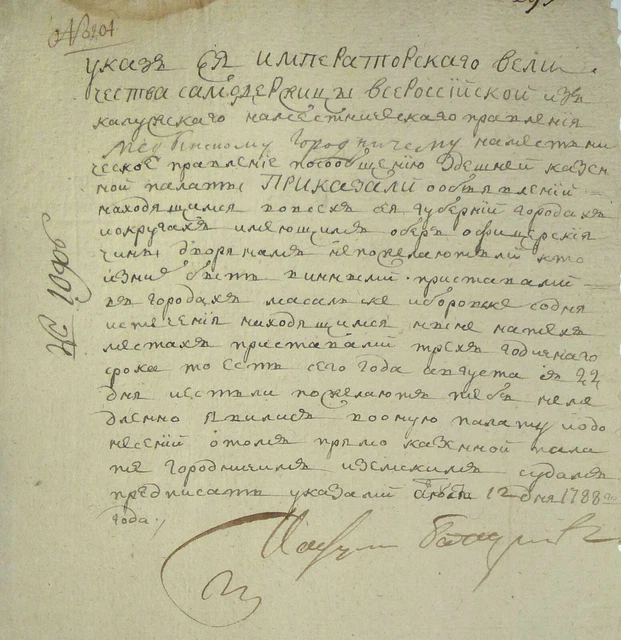 указъ Ея императорскаго вели
чества самодержицы всероссiйской изъ
калужскаго намѣстническаго правленiя
Медынскому городничему намѣстни
ческое правленiе по сообщенiю здешней казен
ной палаты приказали о объявленiй
находящимся по всехъ сея губернiй городахъ
и округахъ имеющимъ оберъ офицерскiя
чины дворянамъ не пожелаютъ ли кто
изние быть винными приставами
въ городахъ масальске и боровске со дня
истеченiя находящимся ныне на техъ
местахъ приставамъ трехъ годичнаго
срока то есть сего года августа съ 22
дня и естьли пожелаютъ те бъ неме
дленно явились в оную палату и о до
несенiй о томъ прямо казенной пала
те городничимъ и земскимъ судамъ
предписать указами августа 12 дня 1788 го
года